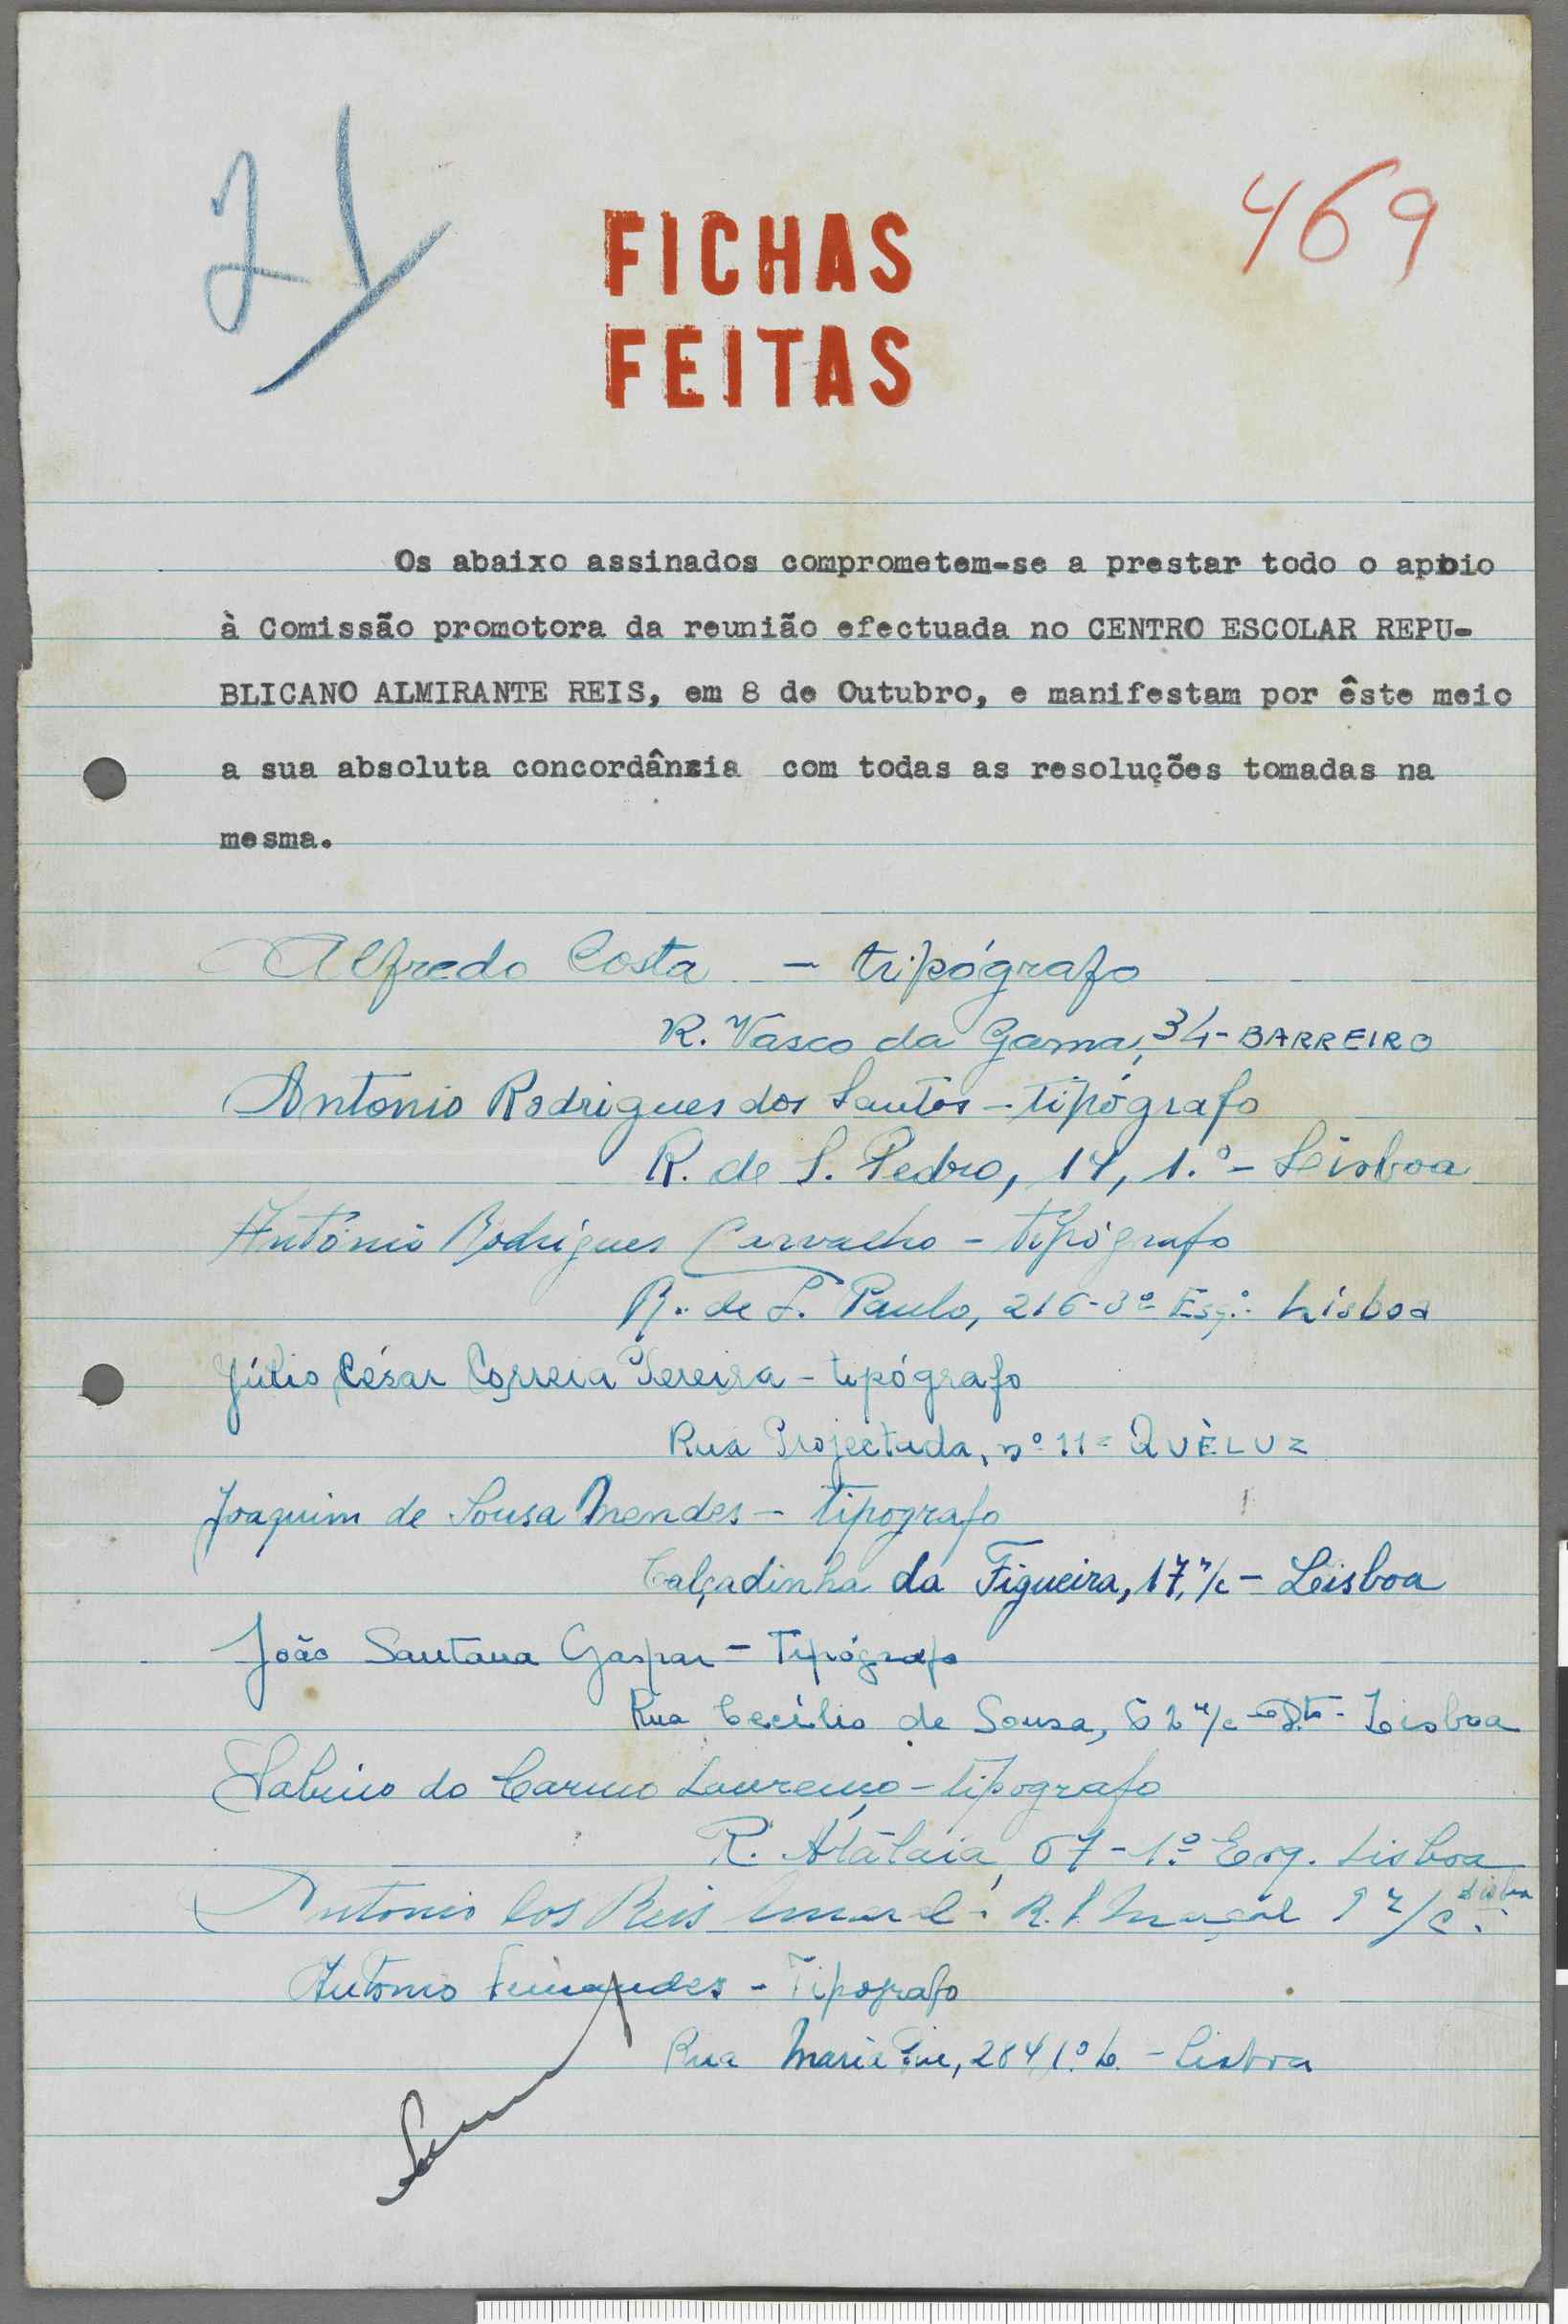 21
469
FICHAS
FEITAS
Os abaixo assinados comprometem-se a prestar todo o apoio
à Comissão promotora da reunião efectuada no CENTRO ESCOLAR REPU-
BLICANO ALMIRANTE REIS, em 8 de Outubro, e manifestam por êste meio
a sua absoluta concordância com todas as resoluções tomadas na
mesma.
Alfredo Costa - tipógrafo
R. Vasco da Gama, 34 - BARREIRO
Antonio Rodrigues dos Santos - tipógrafo
R. de S. Pedro, 14, 1.º - Lisboa
António Rodrigues Carvalho - tipógrafo
R. de S. Paulo, 216-3º Esq.º - Lisboa
Júlio César Correia Pereira - tipógrafo
Rua Projectada, nº 11 = QUÈLUZ
Joaquim de Sousa Mendes - tipografo
Calçadinha da Figueira, 17, r/c - Lisboa
João Santana Gaspar - Tipógrafo
Rua Cecílio de Sousa, 62 r/c - Dto - Lisboa
Sabino do Carmo Lourenço - tipografo
R. Atalaia, 67 - 1º Esq. Lisboa
Antonio dos Reis Amaral - R. S. Marçal 9 r/c Lisboa
Antonio Fernandes - Tipografo
Rua Maria Pia, 284 1.º - Lisboa